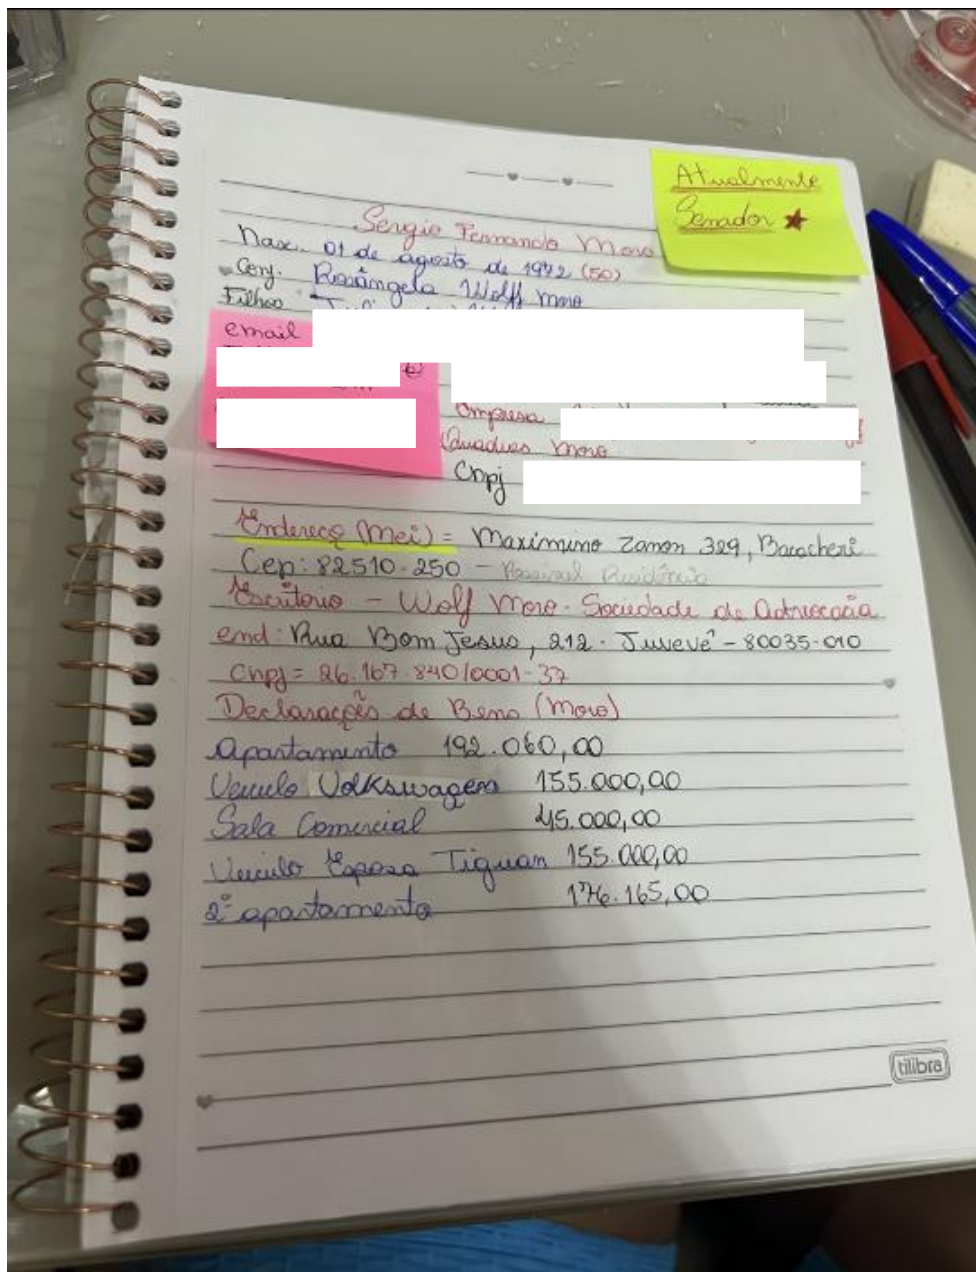 Atualmente
Senador ★
Sergio Fernando Moro
Nasc. 01 de agosto de 1972 (50)
Conj. Rosângela Wolff Moro
Filhos
email
Empresa
Quadros Moro
Cnpj
Endereço (Mei) = Maximino Zanon 329, Bacacheri
Cep: 82510-250 - Possivel Residência
Escritorio - Wolf Moro - Sociedade de Advocacia
end: Rua Bom Jesus, 212 - Juvevê - 80035-010
Cnpj = 26.167.840/0001-37
Declarações de Bens (Moro)
Apartamento 192.060,00
Veiculo Volkswagem 155.000,00
Sala Comercial 45.000,00
Veiculo Esposa Tiguan 155.000,00
2º apartamento 176.165,00
tilibra